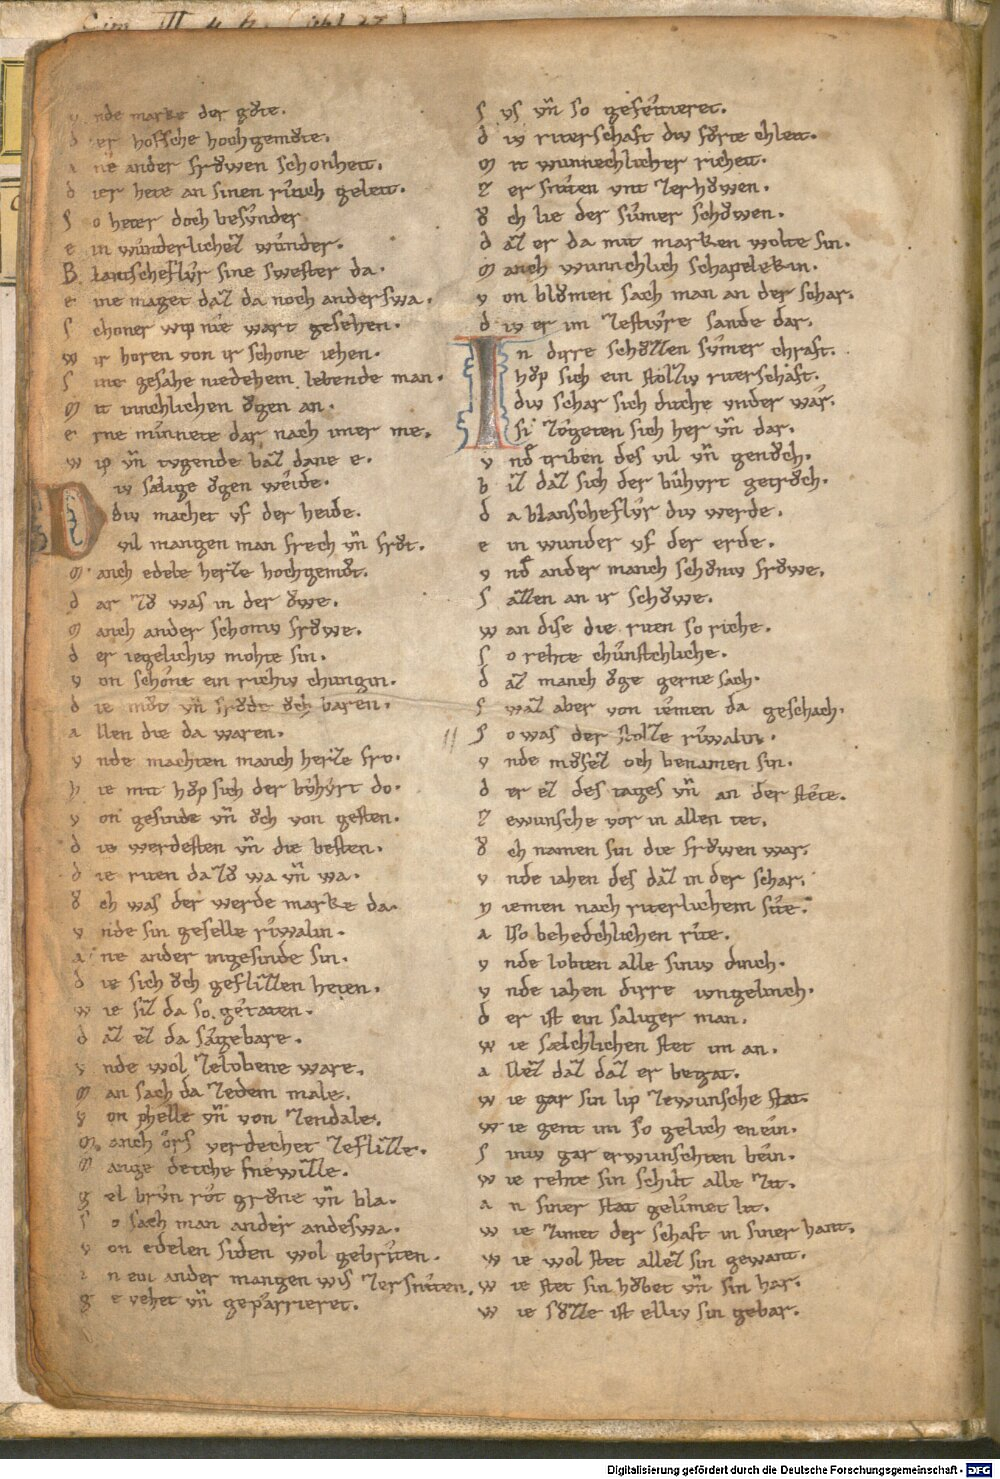 Cim. III
v nde marke der gǒte.
d er hofsche hochgemǒte.
a ne ander frǒwen schonheit.
d ier hete an sinen rinch geleit.
s o heter doch besunder
e in wunderlichez wunder.
B lantscheflur sine swester da.
e ine maget daz da noch anderswa.
s choner wip nie wart gesehen.
w ir horen von ir schone iehen.
s ine gesahe niedehein lebende man.
m it innchlichen ǒgen an.
e rne minnete dar nach imer me.
w ip vn̄ tvgende baz dane e.
D iv sælige ǒgen weide.
div machet vf der heide.
vil mangen man frech vn̄ frǒt.
m anch edele herze hochgemǒt.
d ar zǒ was in der ǒwe.
m anch ander schoniv frǒwe.
d er iegelichiv mohte sin.
v on schone ein richiv chungin.
d ie mǒt vn̄ frǒde ǒch baren.
a llen die da waren.
v nde machten manch herze fro.
h ie mit hǒp sich der buhurt do.
v on gesinde vn̄ ǒch von gesten.
d ie werdesten vn̄ die besten.
d ie riten da zǒ wa vn̄ wa.
ǒ ch was der werde marke da.
v nde sin geselle riwalin.
a ne ander ingesinde sin.
d ie sich ǒch geflizzen heten.
w ie siz da so getaten.
d az ez da sagebare.
v nde wol zelobene ware.
m an sach da zedem male.
v on phelle vn̄ von zendale.
m anch ors verdechet zeflizze.
m ange deche snewizze.
g el brun rot grǒne vn̄ bla.
s o sach man ander andeswa.
v on edelen siden wol gebriten.
i n ein ander mangen wis zersniten.
g e vehet vn̄ geparrieret.
s vs vn̄ so gefeitieret.
d iv riterschaft div fǒrte chleit.
m it wunnechlicher richeit.
z er sniten vnt zerhǒwen.
ǒ ch lie der sumer schǒwen.
d az er da mit marken wolte sin.
m anch wunnchlich schapelekin.
v on blǒmen sach man an der schar.
d iv er im zestivre sande dar.
I n dirre schǒzzen sumer chraft.
hǒp sich ein stolziv riterschaft.
div schar sich diche vnder war.
si zogeten sich her vn̄ dar.
v nd̄ triben des vil vn̄ genǒch.
b iz daz sich der buhurt getrǒch.
d a blanscheflur div werde.
e in wunder vf der erde.
v nd̄ ander manch schǒniv frǒwe.
s azzen an ir schǒwe.
w an dise die riten so riche.
s o rehte chunstchliche.
d az manch ǒge gerne sach.
s waz aber von iemen da geschach.
s o was der stolze riwalin.
v nde mǒsez och benamen sin.
d er ez des tages vn̄ an der stete.
z ewunsche vor in allen tet.
ǒ ch namen sin die frǒwen war.
v nde iahen des daz in der schar.
n iemen nach riterlichem site.
a lso behedchlichen rite.
v nde lobten alle siniv dinch.
v nde iahen dirre iungelinch.
d er ist ein saliger man.
w ie sælchlichen stet im an.
a llez daz daz er begat.
w ie gar sin lip zewunsche stat.
w ie gent im so gelich enein.
s iniv gar erwunschten bein.
w ie rehte sin schilt alle zit.
a n siner stat gelimet lit.
w ie zimet der schaft in siner hant.
w ie wol stet allez sin gewant.
w ie stet sin hǒbet vn̄ sin har.
w ie sǒzze ist elliv sin gebar.
Digitalisierung gefördert durch die Deutsche Forschungsgemeinschaft - DFG